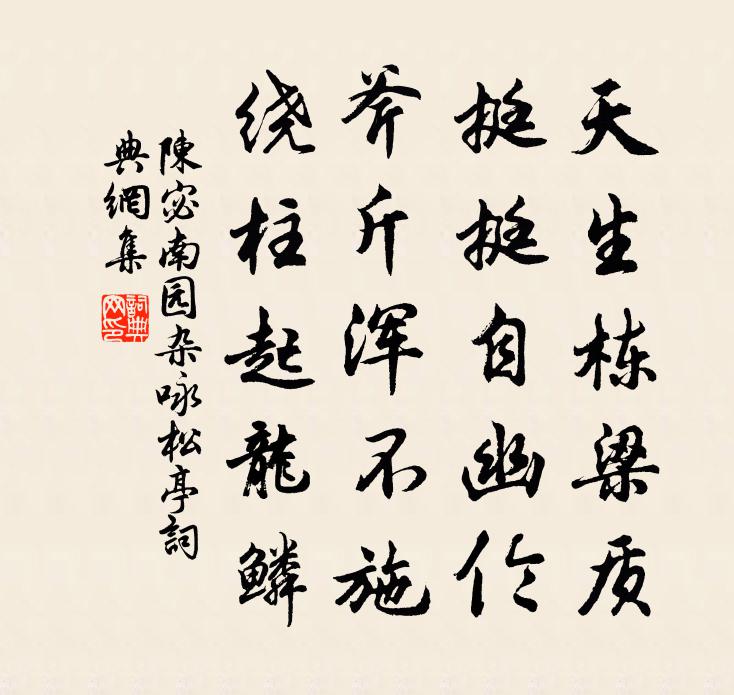 天生栋梁质
挺挺自幽
斧斤浑不施
绕柱起龍鳞
陳宓南园杂咏松亭詞
典網集
詞典
网印